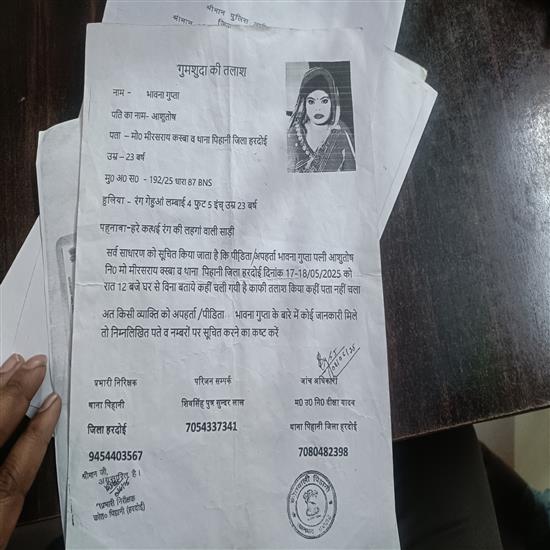 श्रीमान पुलिस
गुमशुदा की तलाश
नाम - भावना गुप्ता
पति का नाम- आशुतोष
पता – मो0 मीरसराय कस्बा व थाना पिहानी जिला हरदोई
उम्र – 23 बर्ष
मु0 अ0 स0 - 192/25 धारा 87 BNS
हुलिया – रंग गेहुआं लम्बाई 4 फुट 5 इंच् उम्र 23 बर्ष
पहनावा–हरे कत्थई रंग की लहगां वाली साड़ी
सर्व साधारण को सूचित किया जाता है कि पीडिता/अपहर्ता भावना गुप्ता पत्नी आशुतोष
नि0 मो मीरसराय क्स्बा व थाना पिहानी जिला हरदोई दिनांक 17-18/05/2025 को
रात 12 बजे घर से विना बताये कहीं चली गयी है काफी तलाश किया कहीं पता नहीं चला
अत किसी व्यक्ति को अपहर्ता /पीडिता भावना गुप्ता के बारे में कोई जानकारी मिले
तो निम्नलिखित पते व नम्बरों पर सूचित करने का कष्ट करें
प्रभारी निरिक्षक परिजन सम्पर्क जांच अधिकारी
थाना पिहानी शिवसिंह पुत्र सुन्दर लाल म0 उ0 नि0 दीक्षा यादव
जिला हरदोई 7054337341 थाना पिहानी जिला हरदोई
9454403567 7080482398
श्रीमान जी,
अग्रसारित है।
प्रभारी निरीक्षक
को0 पिहानी (हरदोई)